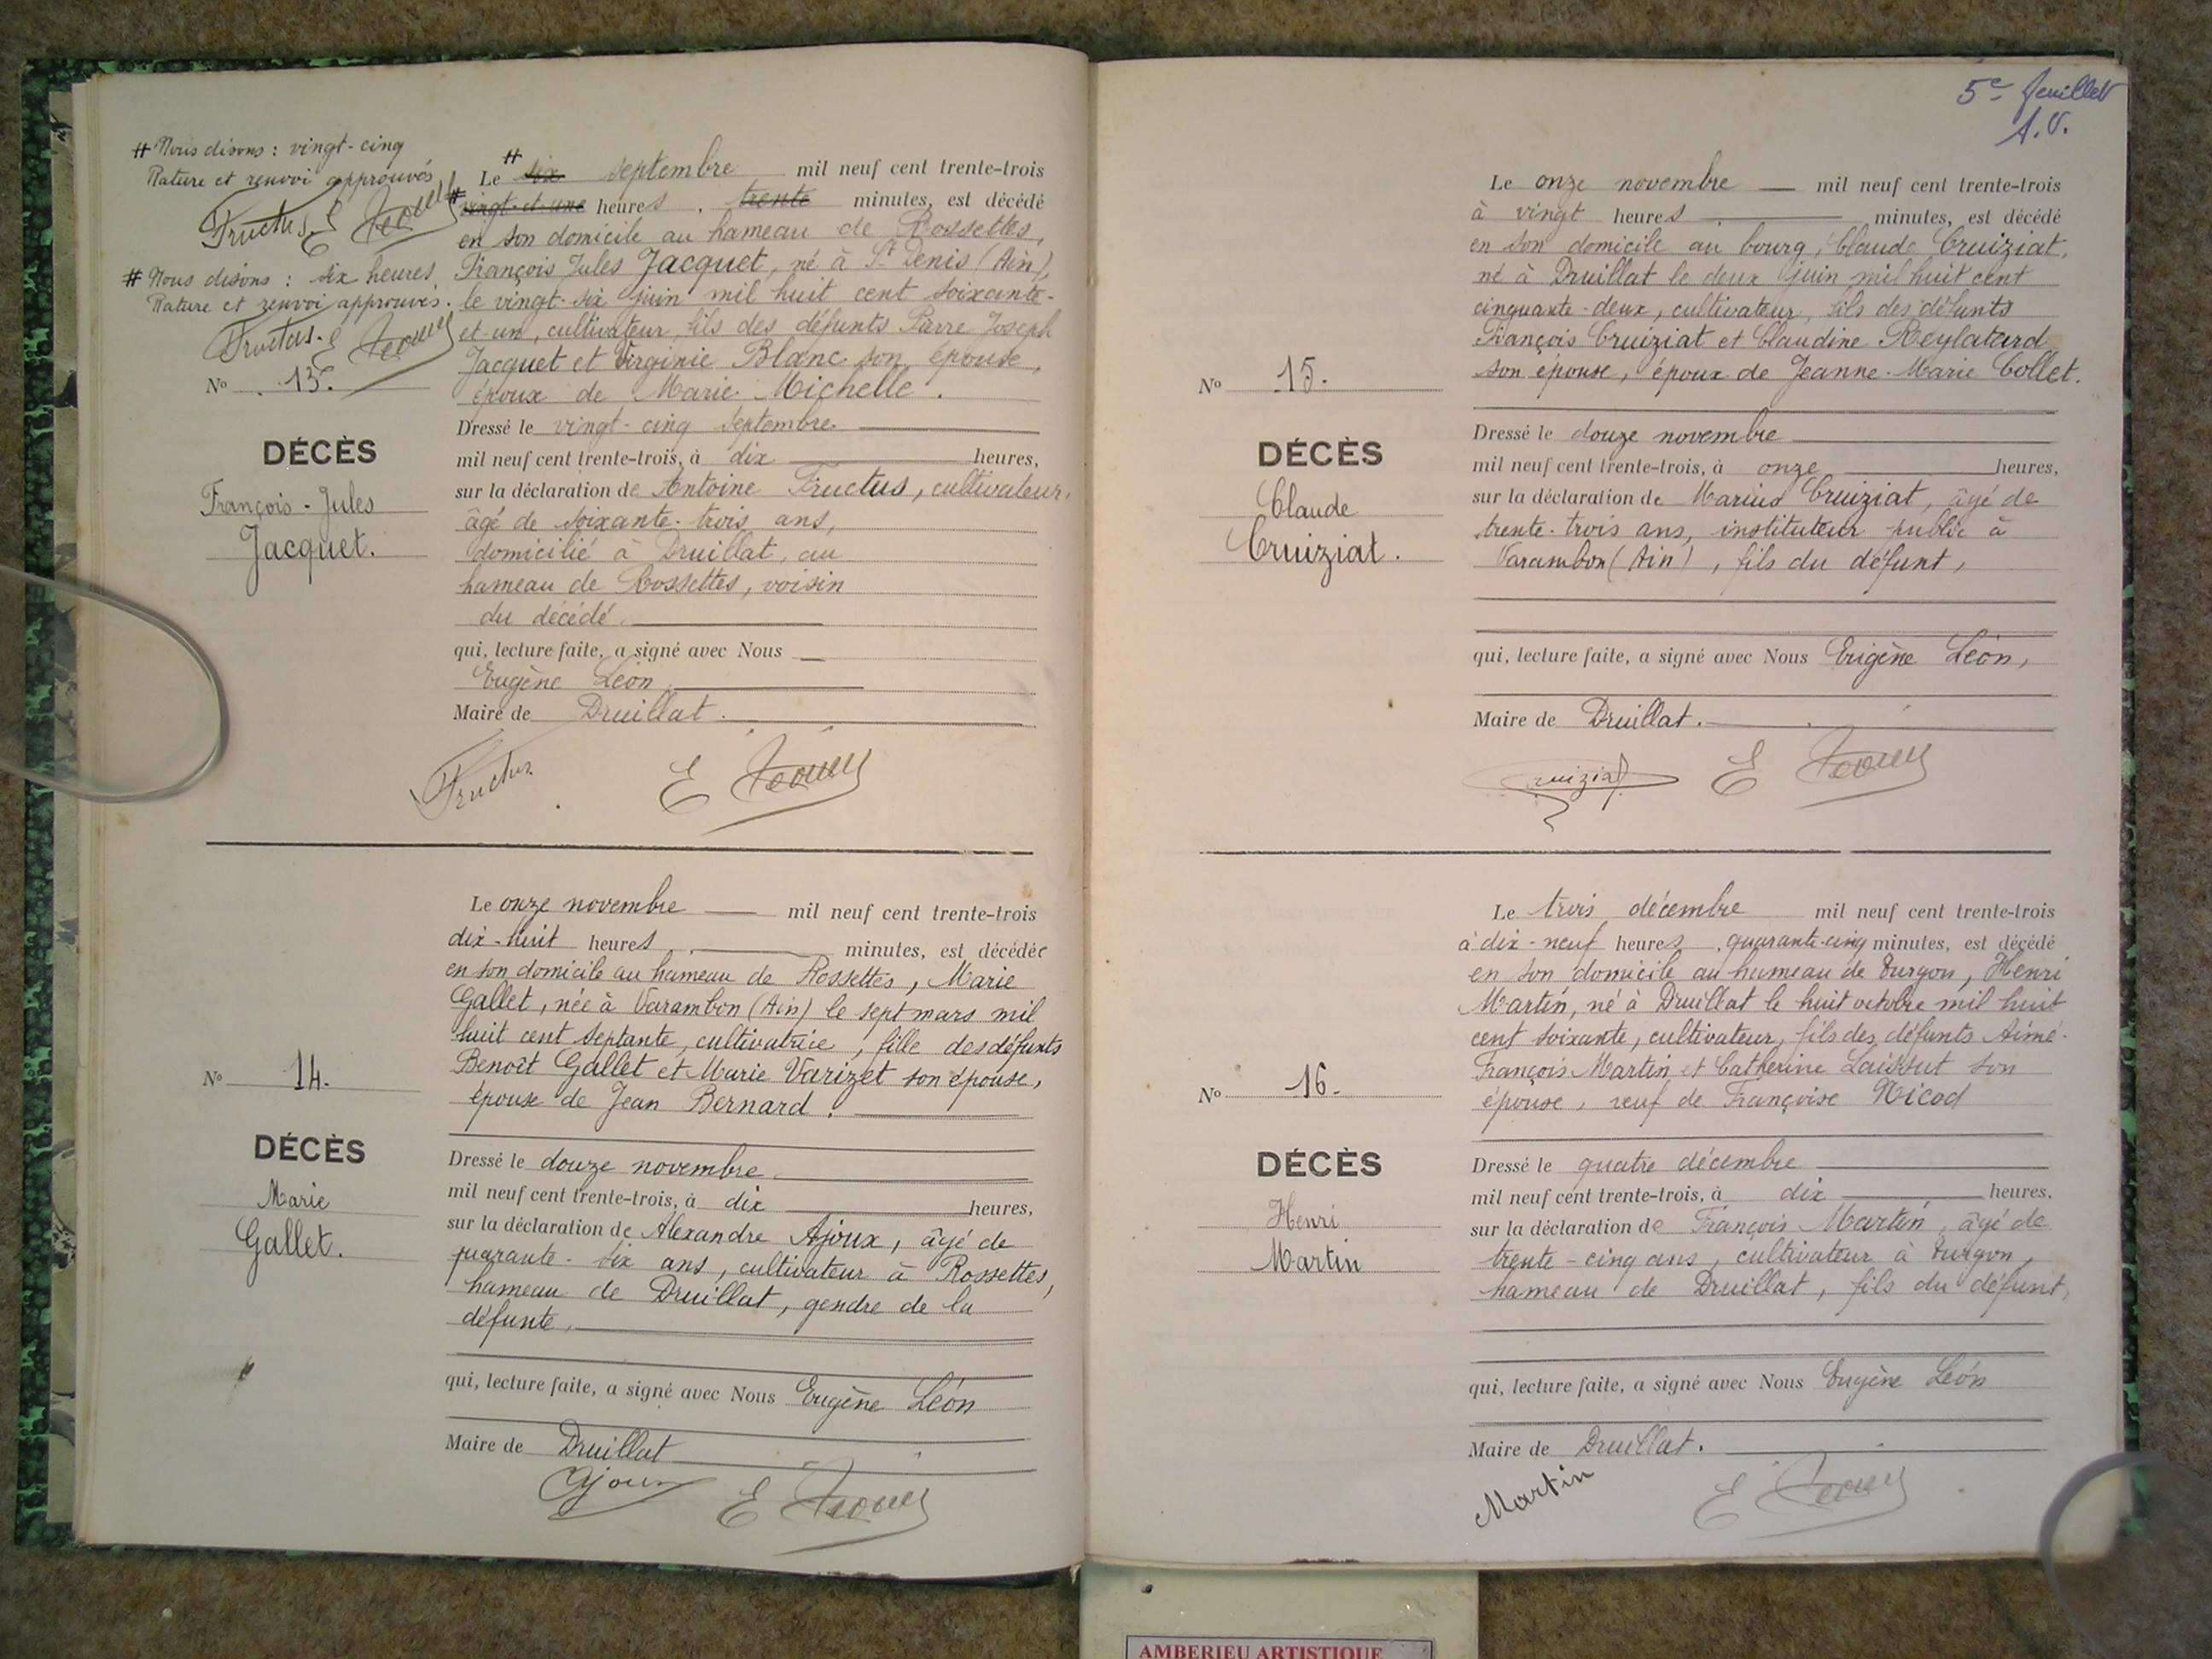 # Nous disons : vingt-cinq
Rature et renvoi approuvés
Fructus E Léon
# Nous disons : six heures
Rature et renvoi approuvés.
Fructus. E Léon
No 13.
DÉCÈS
François-Jules
Jacquet.
#
Le six septembre mil neuf cent trente-trois
# vingt-et-une heures, trente minutes, est décédé
en son domicile au hameau de Rossettes,
François Jules Jacquet, né à St Denis (Ain),
le vingt-six juin mil huit cent soixante-
et-un, cultivateur, fils des défunts Pierre Joseph
Jacquet et Virginie Blanc son épouse,
époux de Marie Michelle.
Dressé le vingt-cinq septembre
mil neuf cent trente-trois, à dix heures,
sur la déclaration de Antoine Fructus, cultivateur,
âgé de soixante-trois ans,
domicilié à Druillat, au
hameau de Rossettes, voisin
du décédé.
qui, lecture faite, a signé avec Nous
Eugène Léon
Maire de Druillat.
Fructus E Léon
No 14.
DÉCÈS
Marie
Gallet.
Le onze novembre mil neuf cent trente-trois
dix-huit heures, minutes, est décédée
en son domicile au hameau de Rossettes, Marie
Gallet, née à Varambon (Ain) le sept mars mil
huit cent septante, cultivatrice, fille des défunts
Benoît Gallet et Marie Varizet son épouse,
épouse de Jean Bernard.
Dressé le douze novembre
mil neuf cent trente-trois, à dix heures,
sur la déclaration de Alexandre Ajoux, âgé de
quarante-six ans, cultivateur à Rossettes,
hameau de Druillat, gendre de la
défunte,
qui, lecture faite, a signé avec Nous Eugène Léon
Maire de Druillat
Ajoux E Léon
5e feuillet
A.V.
No 15.
DÉCÈS
Claude
Cruiziat.
Le onze novembre mil neuf cent trente-trois
à vingt heures minutes, est décédé
en son domicile au bourg, Claude Cruiziat,
né à Druillat le deux juin mil huit cent
cinquante-deux, cultivateur, fils des défunts
François Cruiziat et Claudine Reylatard
son épouse, époux de Jeanne-Marie Collet.
Dressé le douze novembre
mil neuf cent trente-trois, à onze heures,
sur la déclaration de Marius Cruiziat, âgé de
trente-trois ans, instituteur public à
Varambon (Ain), fils du défunt,
qui, lecture faite, a signé avec Nous Eugène Léon,
Maire de Druillat.
Cruiziat E Léon
No 16.
DÉCÈS
Henri
Martin
Le trois décembre mil neuf cent trente-trois
à dix-neuf heures, quarante-cinq minutes, est décédé
en son domicile au hameau de Turgon, Henri
Martin, né à Druillat le huit octobre mil huit
cent soixante, cultivateur, fils des défunts Aimé-
François Martin et Catherine son
épouse, veuf de Françoise Nicod
Dressé le quatre décembre
mil neuf cent trente-trois, à dix heures,
sur la déclaration de François Martin, âgé de
trente-cinq ans, cultivateur à Turgon,
hameau de Druillat, fils du défunt,
qui, lecture faite, a signé avec Nous Eugène Léon
Maire de Druillat.
Martin E Léon
AMBERIEU ARTISTIQUE